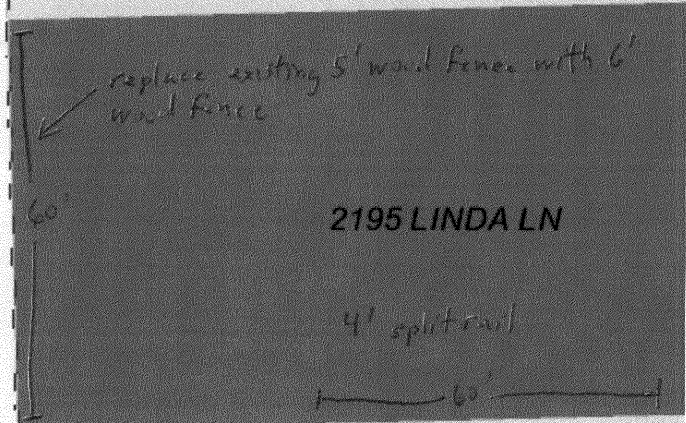 replace existing 5' wood fence with 6'
wood fence
60'
2195 LINDA LN
4' split rail
60'